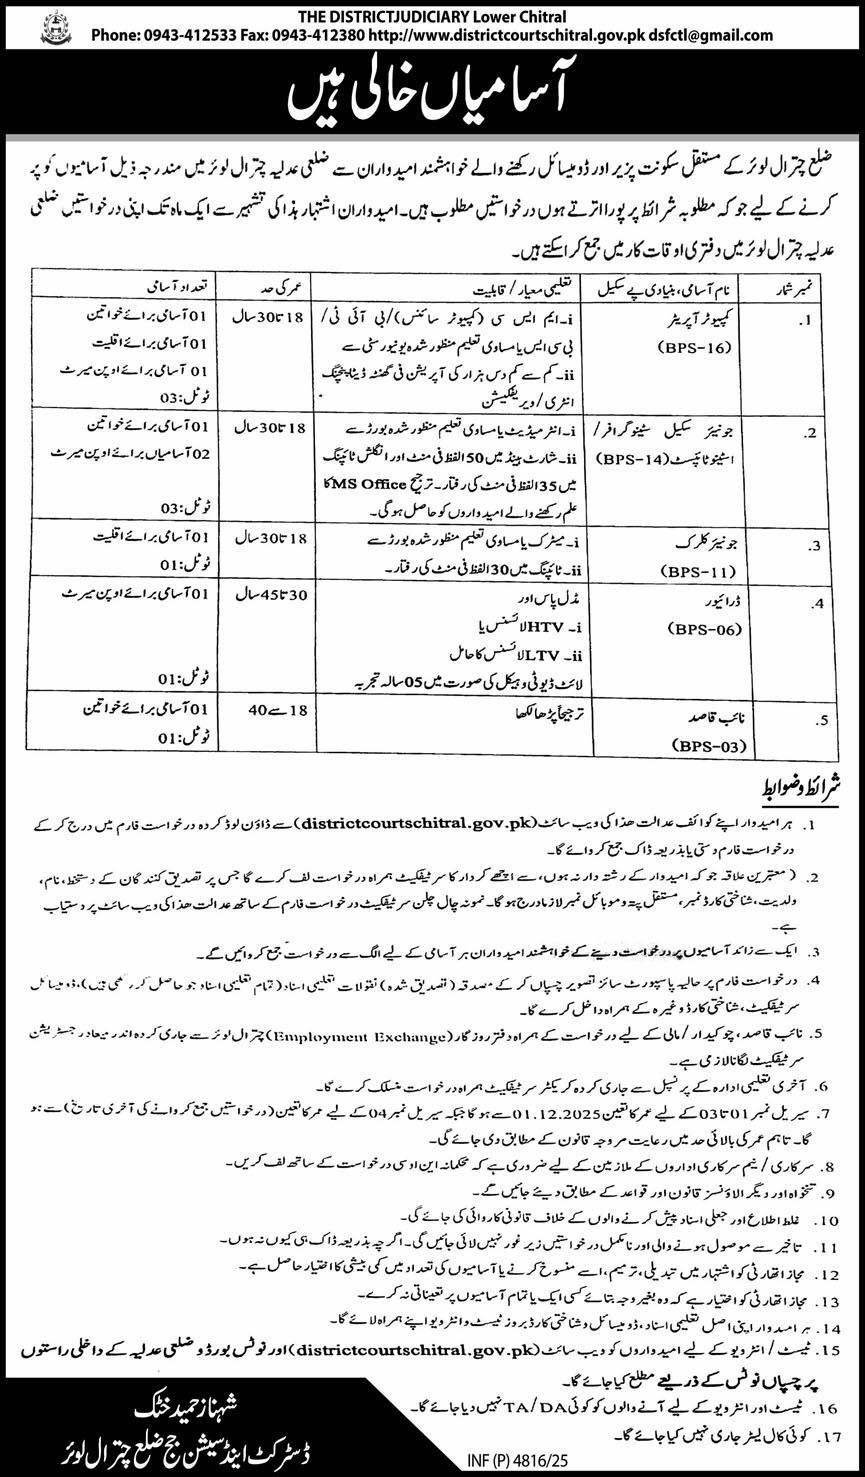 THE DISTRICTJUDICIARY Lower Chitral
Phone: 0943-412533 Fax: 0943-412380 http://www.districtcourtschitral.gov.pk dsfctl@gmail.com
آسامیاں خالی ہیں
ضلع چترال لوئر کے مستقل سکونت پزیر اور ڈومیسائل رکھنے والے خواہشمند امیدواران سے ضلعی عدلیہ چترال لوئر میں مندرجہ ذیل آسامیوں کو پر
کرنے کے لیے جو کہ مطلوبہ شرائط پر پورا اترتے ہوں درخواستیں مطلوب ہیں۔ امیدواران اشتہار ہذا کی تشہیر سے ایک ماہ تک اپنی درخواستیں ضلعی
عدلیہ چترال لوئر میں دفتری اوقات کار میں جمع کراسکتے ہیں۔
نمبر شمار نام آسامی، بنیادی پے سکیل تعلیمی معیار / قابلیت عمر کی حد تعداد آسامی
1. کمپیوٹر آپریٹر
(BPS-16)
i۔ ایم ایس سی (کمپیوٹر سائنس)/بی آئی ٹی/
بی سی ایس یا مساوی تعلیم منظور شدہ یونیورسٹی سے
ii۔ کم سے کم دس ہزار کی آپریشن فی گھنٹہ ڈیٹا پنچنگ
انٹری/ویریفکیشن
18 تا 30 سال
01 آسامی برائے خواتین
01 آسامی برائے اقلیت
01 آسامی برائے اوپن میرٹ
ٹوٹل: 03
2. جونیئر سکیل سٹینوگرافر/
اسٹینوٹائپسٹ (BPS-14)
i۔ انٹرمیڈیٹ یا مساوی تعلیم منظور شدہ بورڈ سے
ii۔ شارٹ ہینڈ میں 50 الفظ فی منٹ اور انگلش ٹائپنگ
میں 35 الفظ فی منٹ کی رفتار۔ ترجیح MS Office کا
علم رکھنے والے امیدواروں کو حاصل ہوگی۔
18 تا 30 سال
01 آسامی برائے خواتین
02 آسامیاں برائے اوپن میرٹ
ٹوٹل: 03
3. جونیئر کلرک
(BPS-11)
i۔ میٹرک یا مساوی تعلیم منظور شدہ بورڈ سے
ii۔ ٹائپنگ میں 30 الفظ فی منٹ کی رفتار۔
18 تا 30 سال
01 آسامی برائے اقلیت
ٹوٹل: 01
4. ڈرائیور
(BPS-06)
مڈل پاس اور
i۔ HTV لائسنس یا
ii۔ LTV لائسنس کا حامل
لائٹ ڈیوٹی وہیکل کی صورت میں 05 سالہ تجربہ
30 تا 45 سال
01 آسامی برائے اوپن میرٹ
ٹوٹل: 01
5. نائب قاصد
(BPS-03)
ترجیحاً پڑھا لکھا
18 سے 40
01 آسامی برائے خواتین
ٹوٹل: 01
شرائط و ضوابط
1. ہر امیدوار اپنے کوائف عدالت ھذا کی ویب سائٹ (districtcourtschitral.gov.pk) سے ڈاؤن لوڈ کردہ درخواست فارم میں درج کر کے
درخواست فارم دستی یا بذریعہ ڈاک جمع کروائے گا۔
2. (معتبرین علاقہ جو کہ امیدوار کے رشتہ دار نہ ہوں، سے اچھے کردار کا سرٹیفکیٹ ہمراہ درخواست لف کرے گا جس پر تصدیق کنندگان کے دستخط، نام،
ولدیت، شناختی کارڈ نمبر، مستقل پتہ و موبائل نمبر لازماً درج ہوگا۔ نمونہ چال چلن سرٹیفکیٹ درخواست فارم کے ساتھ عدالت ھذا کی ویب سائٹ پر دستیاب
ہے۔
3. ایک سے زائد آسامیوں پر درخواست دینے کے خواہشمند امیدواران ہر آسامی کے لیے الگ سے درخواست جمع کروائیں گے۔
4. درخواست فارم پر حالیہ پاسپورٹ سائز تصویر چسپاں کر کے مصدقہ (تصدیق شدہ) نقولات تعلیمی اسناد (تمام تعلیمی اسناد جو حاصل کر رکھی ہیں)، ڈومیسائل
سرٹیفکیٹ، شناختی کارڈ وغیرہ کے ہمراہ داخل کرے گا۔
5. نائب قاصد، چوکیدار/مالی کے لیے درخواست کے ہمراہ دفتر روزگار (Employment Exchange) چترال لوئر سے جاری کردہ اندر میعاد رجسٹریشن
سرٹیفکیٹ لگانا لازمی ہے۔
6. آخری تعلیمی ادارہ کے پرنسپل سے جاری کردہ کریکٹر سرٹیفکیٹ ہمراہ درخواست منسلک کرے گا۔
7. سیریل نمبر 01 تا 03 کے لیے عمر کا تعین 01.12.2025 سے ہوگا جبکہ سیریل نمبر 04 کے لیے عمر کا تعین (درخواستیں جمع کروانے کی آخری تاریخ) سے ہو
گا۔ تاہم عمر کی بالائی حد میں رعایت مروجہ قانون کے مطابق دی جائے گی۔
8. سرکاری / نیم سرکاری اداروں کے ملازمین کے لیے ضروری ہے کہ محکمانہ این او سی درخواست کے ساتھ لف کریں۔
9. تنخواہ اور دیگر الاؤنسز قانون اور قواعد کے مطابق دیئے جائیں گے۔
10. غلط اطلاع اور جعلی اسناد پیش کرنے والوں کے خلاف قانونی کاروائی کی جائے گی۔
11. تاخیر سے موصول ہونے والی اور نامکمل درخواستیں زیر غور نہیں لائی جائیں گی۔ اگرچہ بذریعہ ڈاک ہی کیوں نہ ہوں۔
12. مجاز اتھارٹی کو اشتہار میں تبدیلی، ترمیم، اسے منسوخ کرنے یا آسامیوں کی تعداد میں کمی بیشی کا اختیار حاصل ہے۔
13. مجاز اتھارٹی کو اختیار ہے کہ وہ بغیر وجہ بتائے کسی ایک یا تمام آسامیوں پر تعیناتی نہ کرے۔
14. ہر امیدوار اپنی اصل تعلیمی اسناد، ڈومیسائل و شناختی کارڈ بروز ٹیسٹ و انٹرویو اپنے ہمراہ لائے گا۔
15. ٹیسٹ / انٹرویو کے لیے امیدواروں کو ویب سائٹ (districtcourtschitral.gov.pk) اور نوٹس بورڈ و ضلعی عدلیہ کے داخلی راستوں
پر چسپاں نوٹس کے ذریعے مطلع کیا جائے گا۔
16. ٹیسٹ اور انٹرویو کے لیے آنے والوں کو کوئی TA/DA نہیں دیا جائے گا۔
17. کوئی کال لیٹر جاری نہیں کیا جائے گا۔
شہناز حمید خٹک
ڈسٹرکٹ اینڈ سیشن جج ضلع چترال لوئر
INF (P) 4816/25